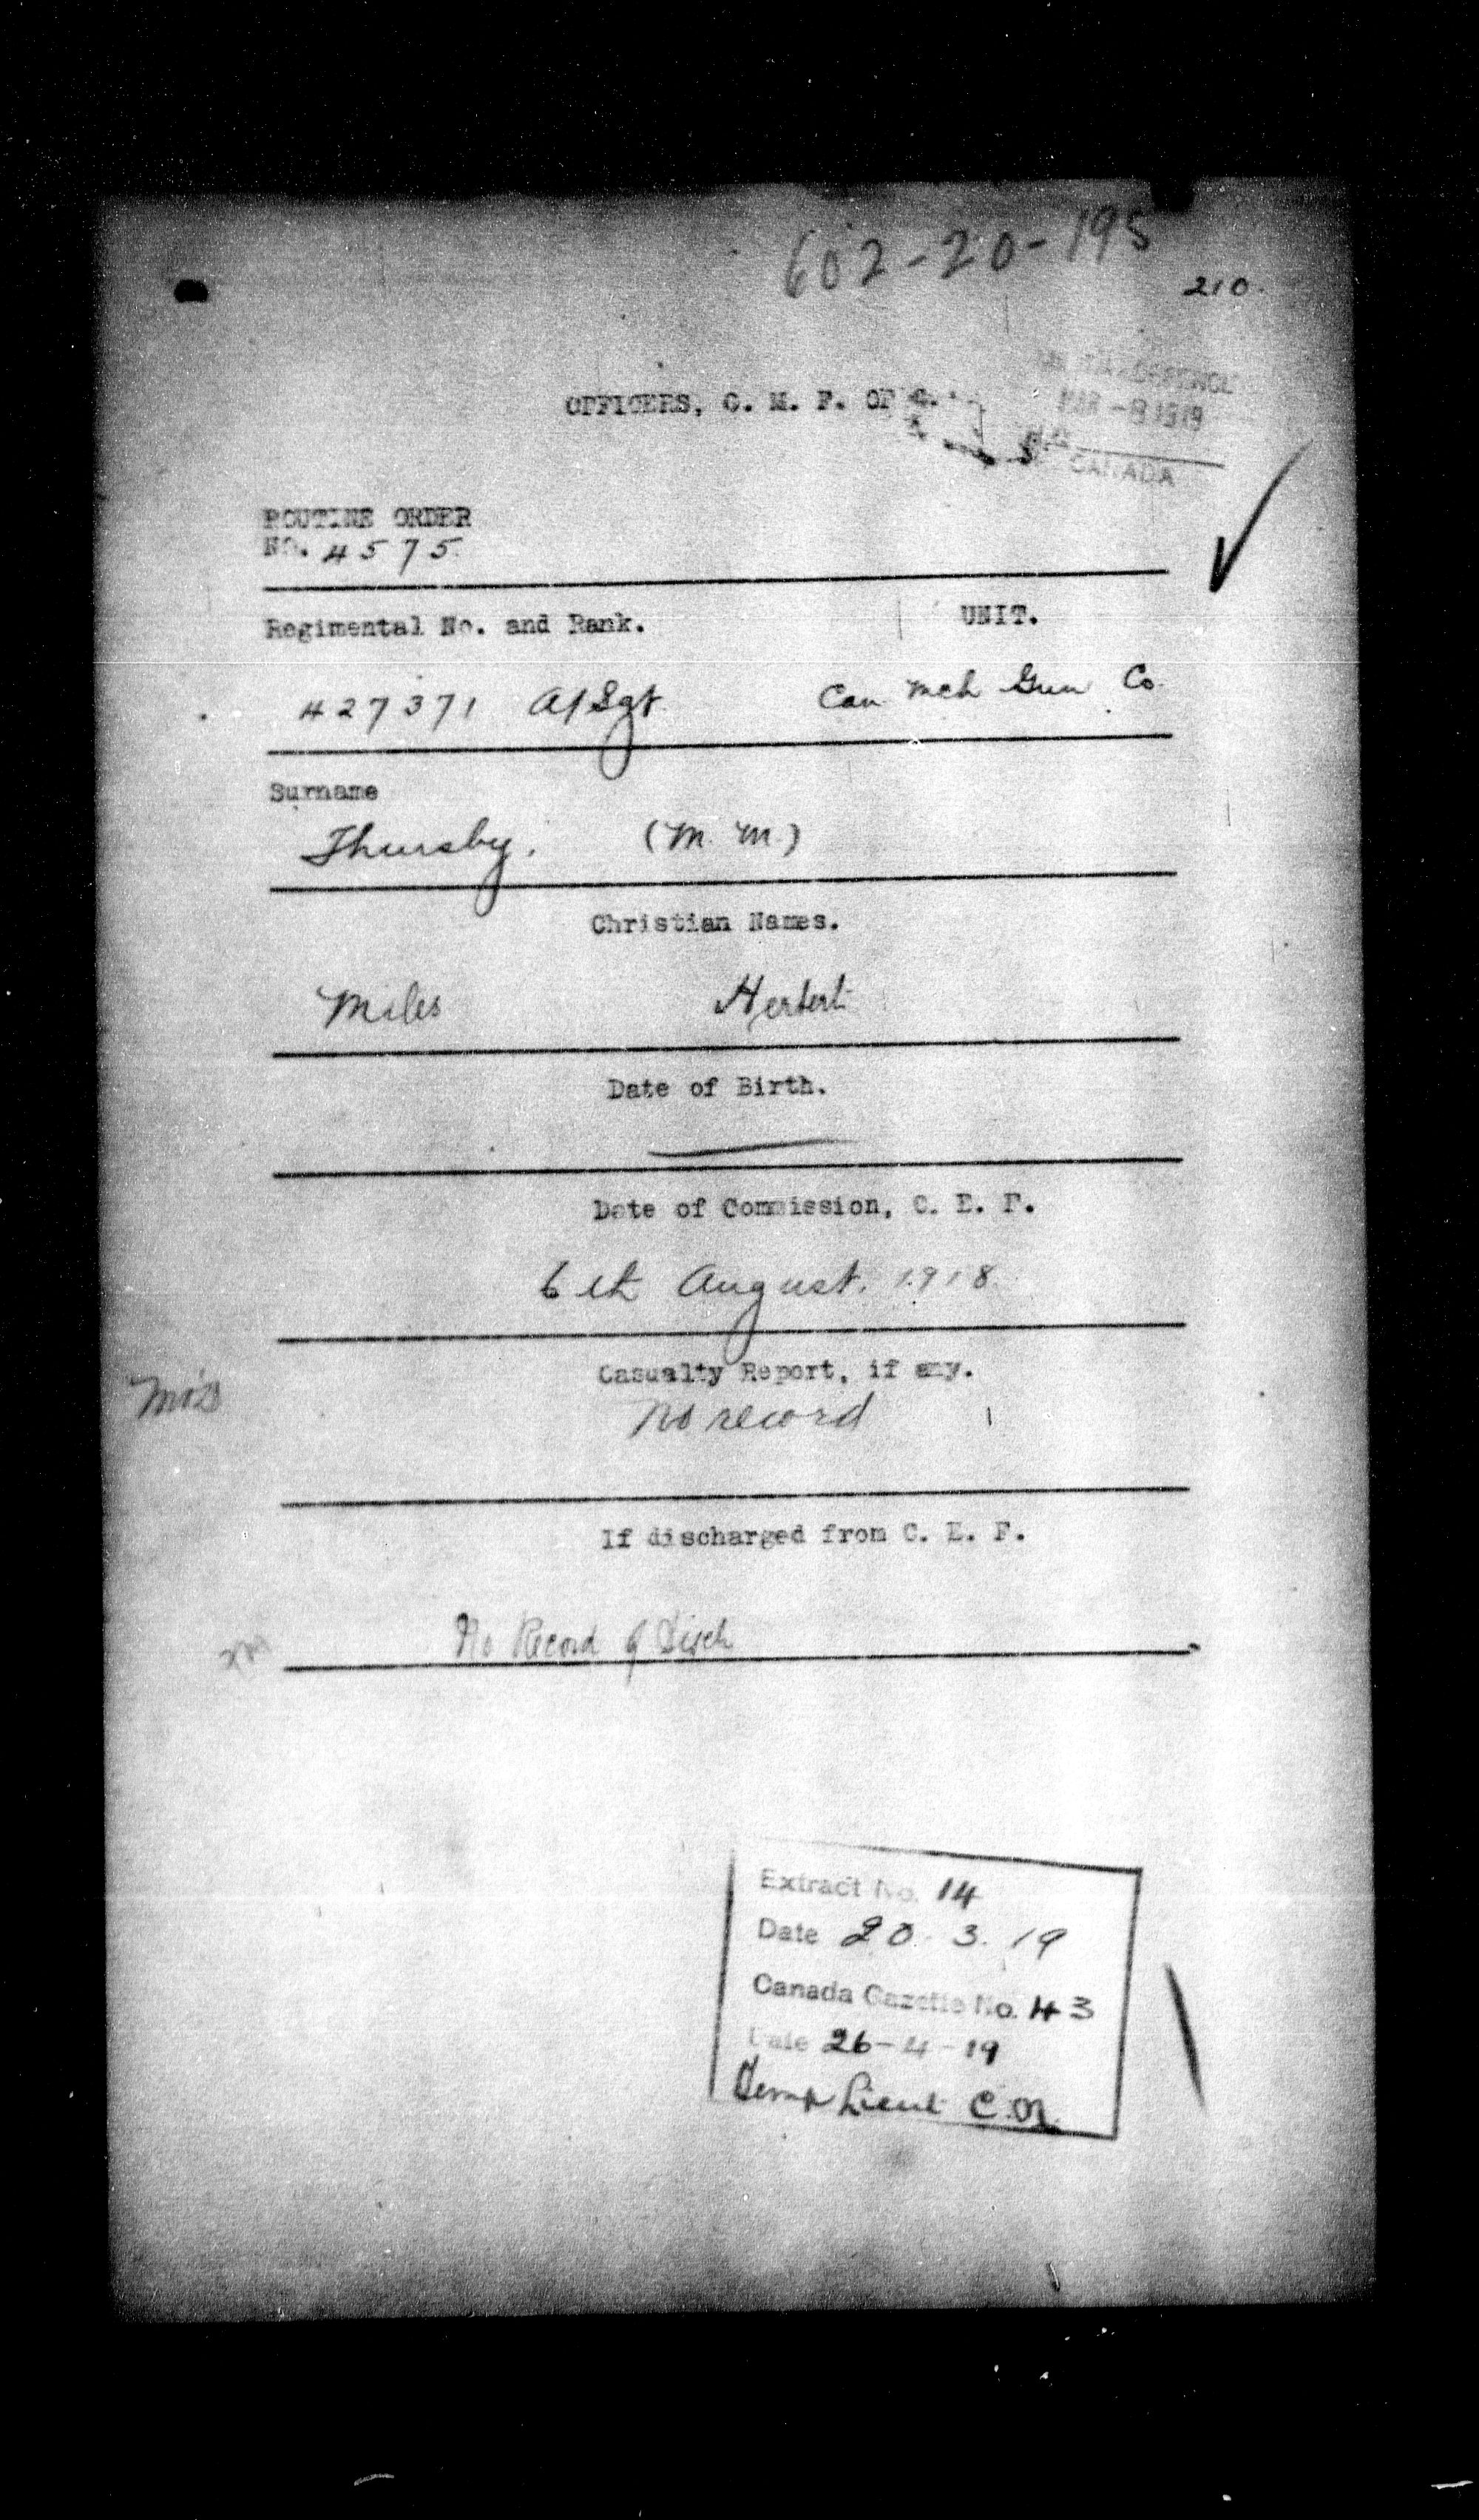 602-20-195
210.
OFFICERS, C. M. F. OF C.
DEFENCE
MAR -8 1919
CANADA
ROUTINE ORDER
NO. 4575
Regimental No. and Rank. UNIT.
427371 A/Sgt. Can Mch Gun Co.
Surname
Thursby. (M. M.)
Christian Names.
Miles Herbert
Date of Birth.
Date of Commission, C. E. F.
6th August. 1918
Casualty Report, if any.
No record
If discharged from C. E. F.
No Record of Disch
Extract No. 14
Date 20. 3. 19
Canada Gazette No. 43
Date 26-4-19
Temp Lieut